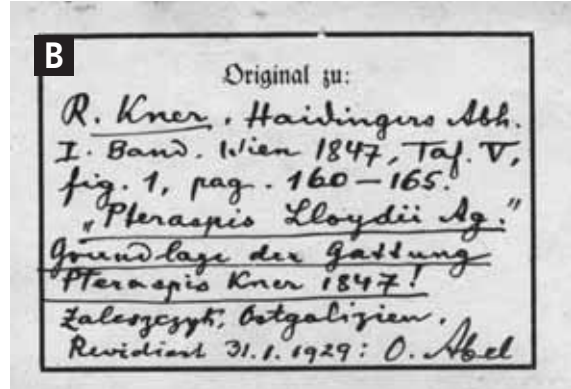 B
Original zu:
R. Kner. Haidingers Abh.
I. Band. Wien 1847, Taf. V,
fig. 1, pag. 160–165.
„Pteraspis Lloydii Ag."
Grundlage der Gattung
Pteraspis Kner 1847!
Zaleszczyk, Ostgalizien.
Revidiert 31.1.1929: O. Abel